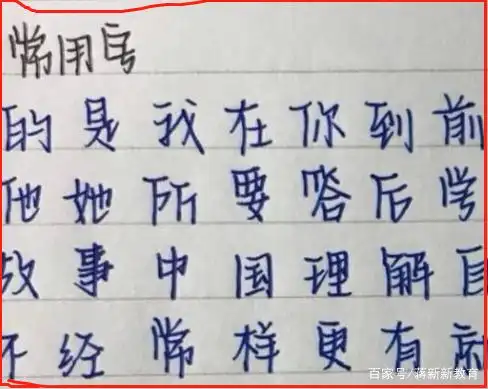 常用字
的是我在你到前
他她所要答后学
故事中国理解自
不经常样更有
百家号/蒋新新教育